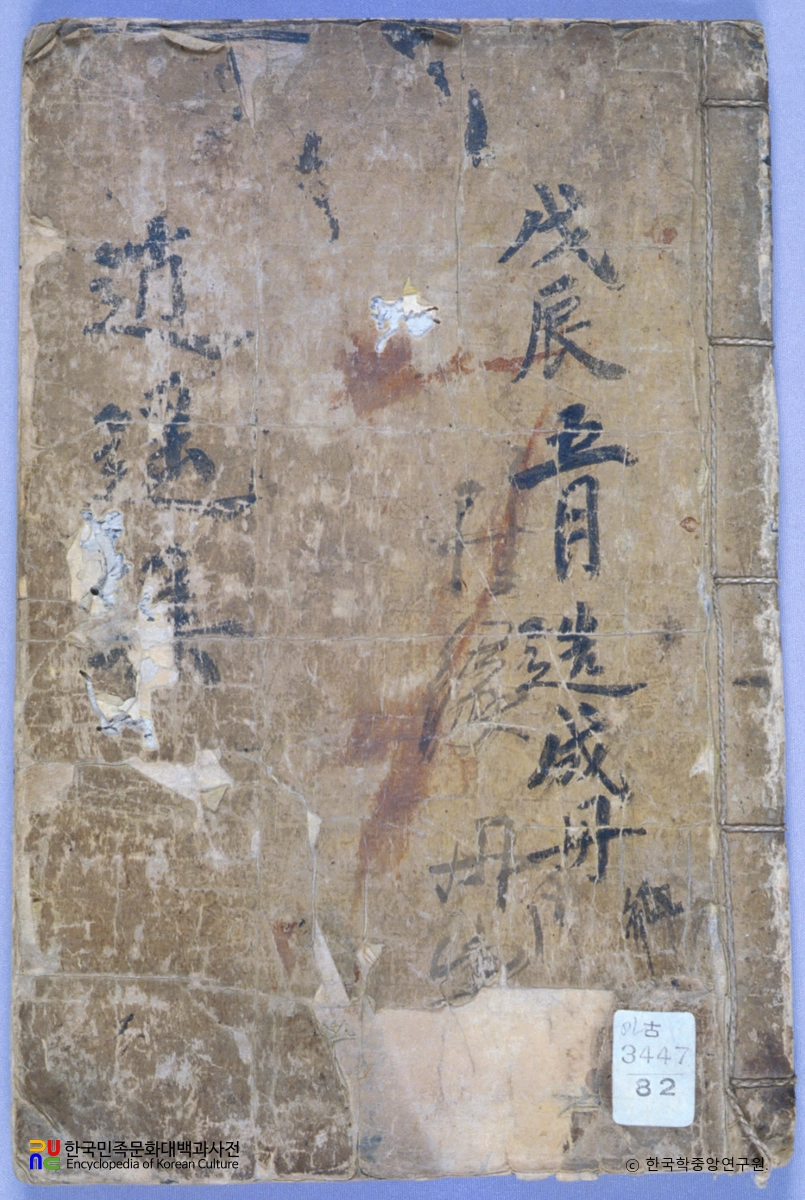 戊辰五月造成冊
逍遙集
古
3447
82
한국민족문화대백과사전
Encyclopedia of Korean Culture
ⓒ 한국학중앙연구원